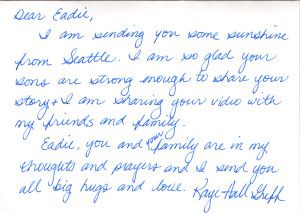 Dear Eadie,
I am sending you some sunshine
from Seattle. I am so glad your
sons are strong enough to share your
story & I am sharing your video with
my friends and family.
Eadie, you and your family are in my
thoughts and prayers and I send you
all big hugs and love. Raye Hall